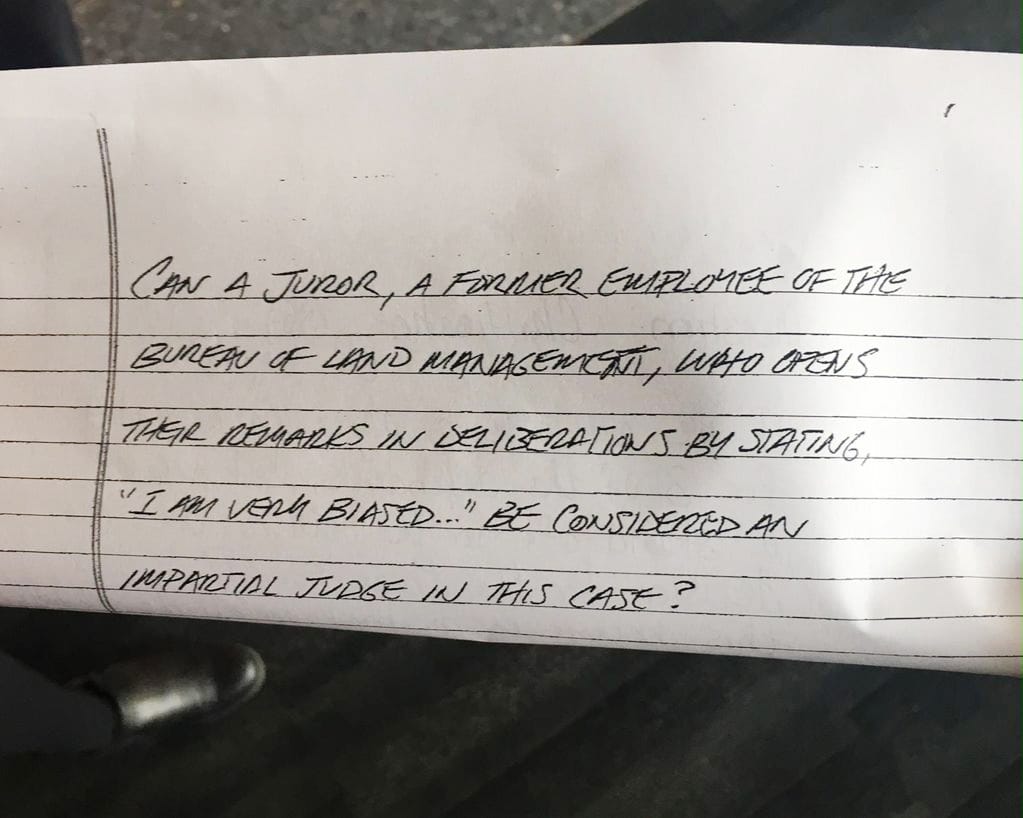 CAN A JUROR, A FORMER EMPLOYEE OF THE
BUREAU OF LAND MANAGEMENT, WHO OPENS
THEIR REMARKS IN DELIBERATIONS BY STATING,
"I AM VERY BIASED..." BE CONSIDERED AN
IMPARTIAL JUDGE IN THIS CASE?